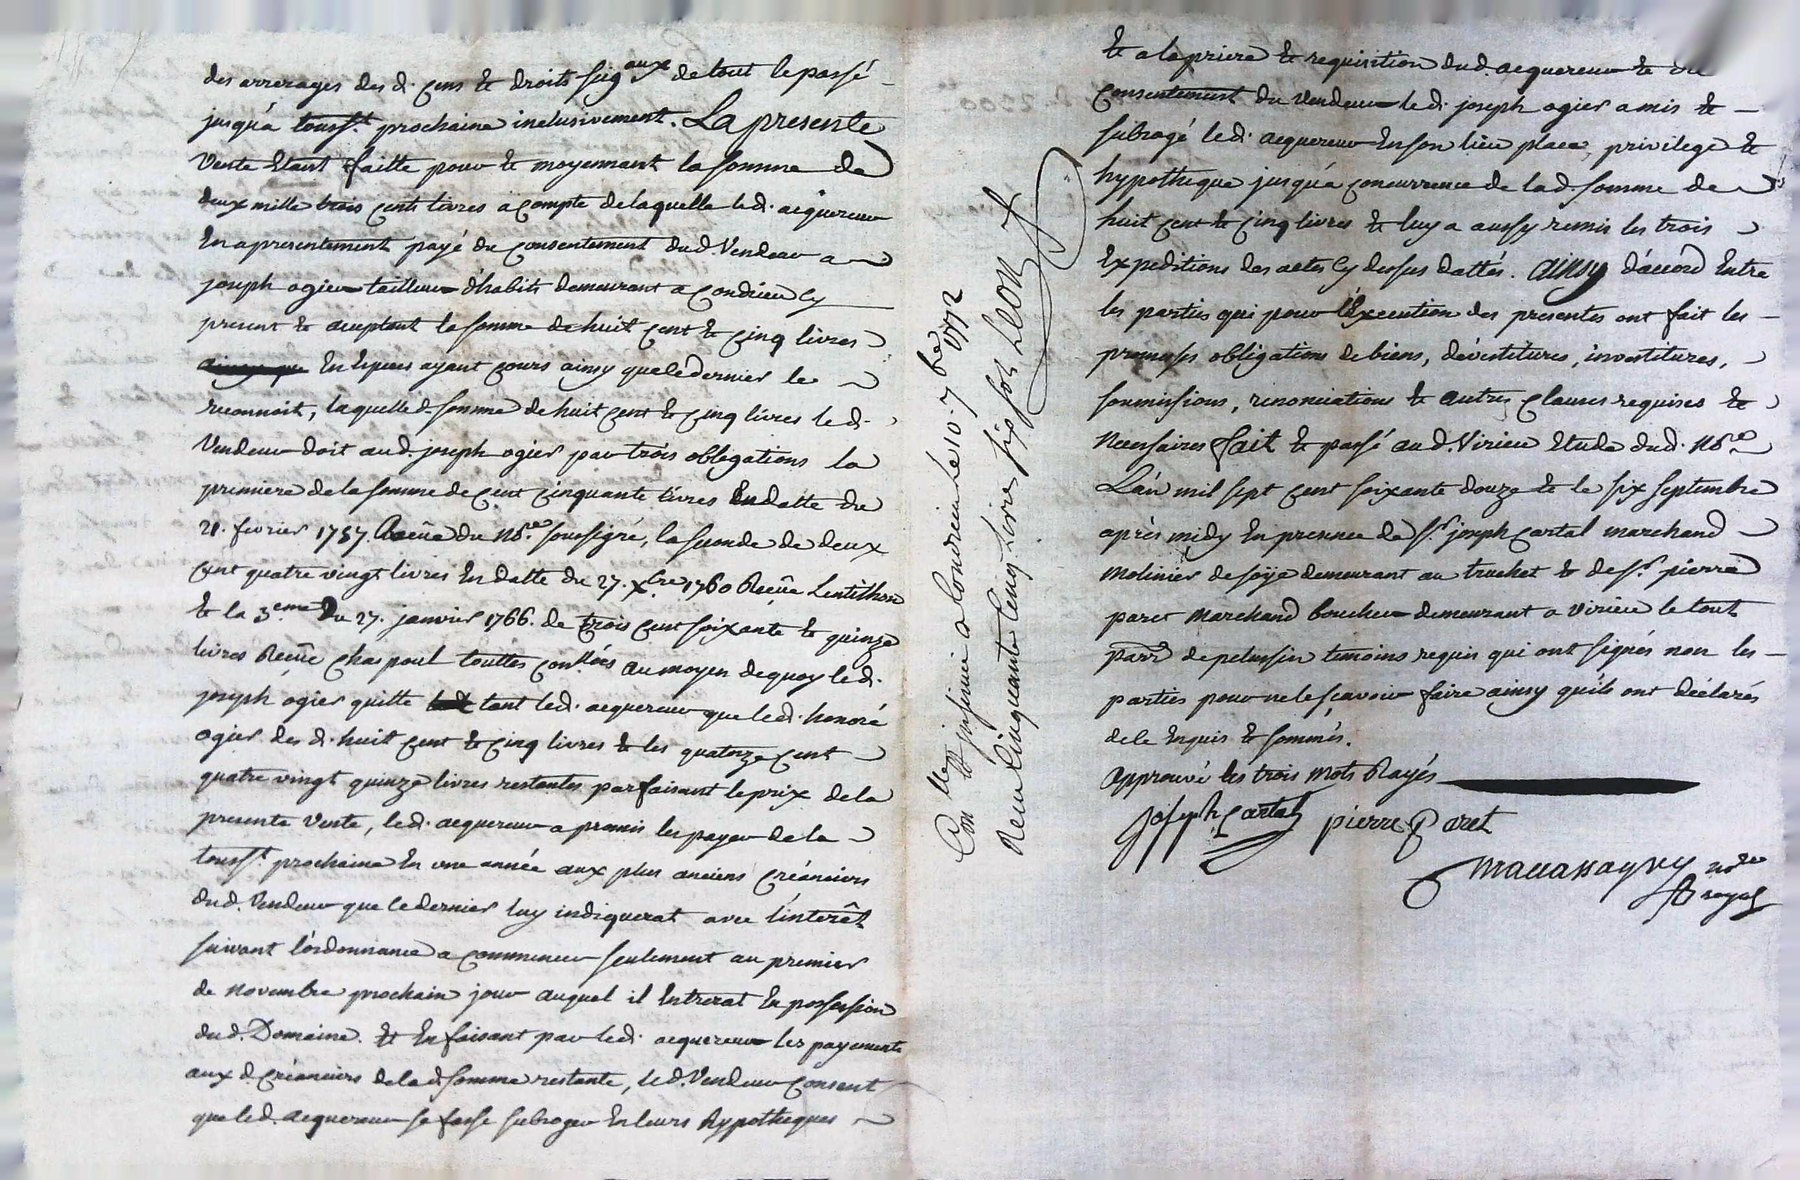 des arrerages des d. cens & droits seig.aux de tout le passé
jusqu'a touss.t prochaine inclusivement. La presente
Vente Etant faitte pour & moyennant la somme de
deux mille trois cents livres a compte de laquelle led. acquereur
En a presentement payé du consentement dud. Vendeur a
joseph ogier tailleur d'habits demeurant a Condrieu cy
present & acceptant la somme de huit cent & cinq livres
En Especes ayant cours ainsy que le dernier le
reconnoit, laquelle d. somme de huit cent & cinq livres led.
Vendeur doit aud. joseph ogier par trois obligations la
premiere de la somme de cent cinquante livres En datte du
21. fevrier 1757. Recüe du No.re soussigné, la seconde de deux
cent quatre vingt livres En datte du 27. xbre 1760 Recüe Lentithon
& la 3.eme du 27. janvier 1766. de trois cent soixante & quinze
livres Recüe chaspoul touttes con.llées au moyen de quoy led.
joseph ogier quitte tant led. acquereur que led. honoré
ogier des d. huit cent & cinq livres & les quatorze cent
quatre vingt quinze livres restantes parfaisant le prix de la
presente Vente, led. acquereur a promis les payer de la
touss.t prochaine En une année aux plus anciens créanciers
dud. Vendeur que ce dernier luy indiquerat avec l'interêt
suivant l'ordonnance a commencer seulement au premier
de novembre prochain jour auquel il Entrerat En possession
dud. Domaine. & En faisant par led. acquereur les payements
aux d. créanciers de la d. somme restante, led. Vendeur consent
que led. acquereur se fasse subroger En leurs hypotheques
Con.llé & insinué a Condrieu le 10. 7bre 1772
Recu Cinquante Cinq livres six sols Leon
& a la priere & requisition dud. acquereur & du
consentement du Vendeur led. joseph ogier a mis &
subrogé led. acquereur En son lieu place, privilege &
hypotheque jusqu'a concurrence de lad. somme de
huit cent & cinq livres & luy a aussy remis les trois
Expeditions des actes cy dessus dattés. Ainsy d'accord Entre
les parties qui pour l'Execution des presentes ont fait les
promesses obligations de biens, devestitures, investitures,
soumissions, renonciations & autres clauses requises &
Necessaires fait & passé aud. Virieu Etude dud. No.re
L'an mil sept cent soixante douze & le six septembre
après midy En presence de s.r joseph Cartal marchand
Molinier de soÿe demeurant au truchet & de s.r pierre
paret Marchand boucher demeurant a Virieu le tout
parr.e de pelussin temoins requis qui ont signés non les
parties pour ne le scavoir faire ainsy qu'ils ont déclarés
de ce Enquis & sommés.
Approuvé les trois mots Rayés
joseph Cartal pierre Paret
Mavassagny no.re
royal